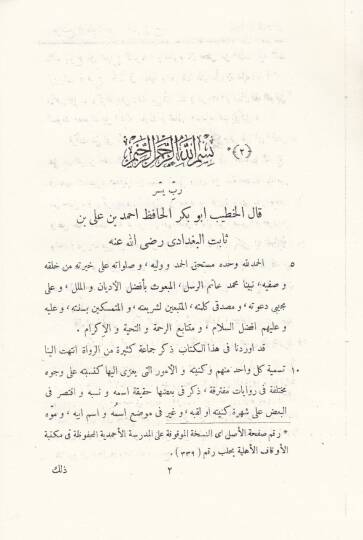 (٢)* بسم الله الرحمن الرحيم
رب يسر
قال الخطيب ابو بكر الحافظ احمد بن على بن
ثابت البغدادى رضى الله عنه
٥ الحمدلله وحده مستحق الحمد و وليه ، و صلواته على خيرته من خلقه
و صفيه ، نبينا محمد خاتم الرسل ، المبعوث بأفضل الأديان و الملل ، و على
مجيبى دعوته ، و مصدقى كلمته ، المتبعين لشريعته ، و المتمسكين بسنته ، و عليه
و عليهم افضل السلام ، و متتابع الرحمة و التحية و الإكرام .
قد اوردنا فى هذا الكتاب ذكر جماعة كثيرة من الرواة انتهت الينا
١٠ تسمية كل واحد منهم وكنيته و الأمور التى يعزى اليها كنسبته على وجوه
مختلفة فى روايات مفترقة ، ذكر فى بعضها حقيقة اسمه و نسبه و اقتصر فى
البعض على شهرة كنيته او لقبه ، و غير فى موضع اسمه و اسم ابيه ، و موّه
* رقم صفحة الأصل اى النسخة الموقوفة على المدرسة الأحمدية المحفوظة فى مكتبة
الأوقاف الأهلية بحلب رقم (٣٣٩) .
٢ ذلك